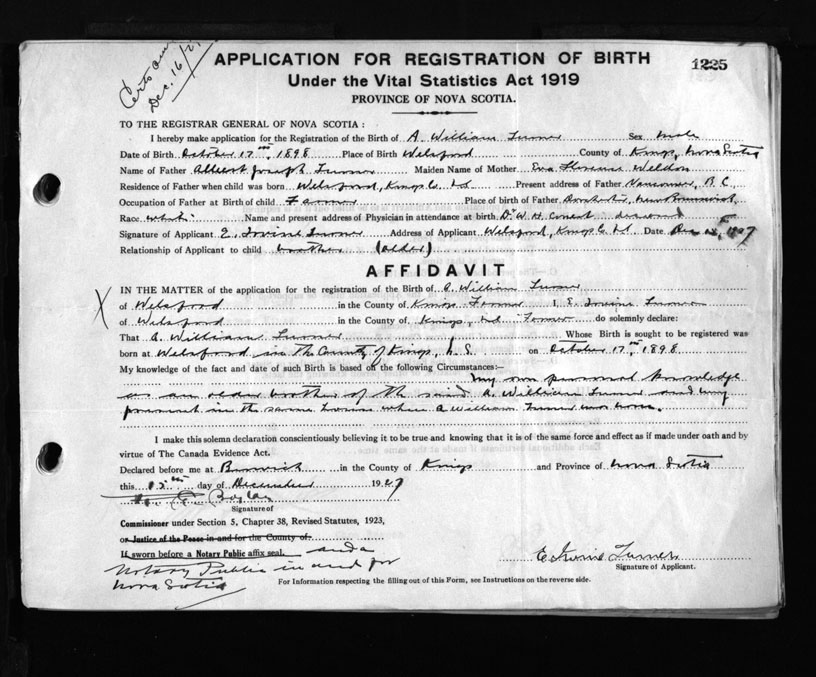 Certs
Dec. 16/27
APPLICATION FOR REGISTRATION OF BIRTH
1225
Under the Vital Statistics Act 1919
PROVINCE OF NOVA SCOTIA.
TO THE REGISTRAR GENERAL OF NOVA SCOTIA :
I hereby make application for the Registration of the Birth of A William Turner Sex male
Date of Birth October 17th, 1898 Place of Birth Welsford County of Kings, Nova Scotia
Name of Father Albert Joseph Turner Maiden Name of Mother Eva Florence Weldon
Residence of Father when child was born Welsford, Kings Co. Present address of Father Vancouver, B.C.
Occupation of Father at Birth of child Farmer Place of birth of Father New Brunswick
Race white Name and present address of Physician in attendance at birth Dr W. H. deceased
Signature of Applicant E. Irvine Turner Address of Applicant Welsford, Kings Co. N.S. Date Dec
Relationship of Applicant to child brother (older)
AFFIDAVIT
IN THE MATTER of the application for the registration of the Birth of A. William Turner
X of Welsford in the County of Kings Farmer I, E. Irvine Turner
of Welsford in the County of Kings, Farmer do solemnly declare:
That A. William Turner Whose Birth is sought to be registered was
born at Welsford in the County of Kings, N.S. on October 17th, 1898
My knowledge of the fact and date of such Birth is based on the following Circumstances:—
my own personal knowledge
as an older brother of the said A. William Turner and being
present in the same house when A William Turner was born.
I make this solema declaration conscientiously believing it to be true and knowing that it is of the same force and effect as if made under oath and by
virtue of The Canada Evidence Act.
Declared before me at Berwick in the County of Kings and Province of Nova Scotia
this day of December 1927
Signature of
Commissioner under Section 5, Chapter 38, Revised Statutes, 1923,
or Justice of the Peace in and for the County of
If sworn before a Notary Public affix seal. and a
Notary Public in and for
Nova Scotia
E Irvine Turner
Signature of Applicant.
For Information respecting the filling out of this Form, see Instructions on the reverse side.